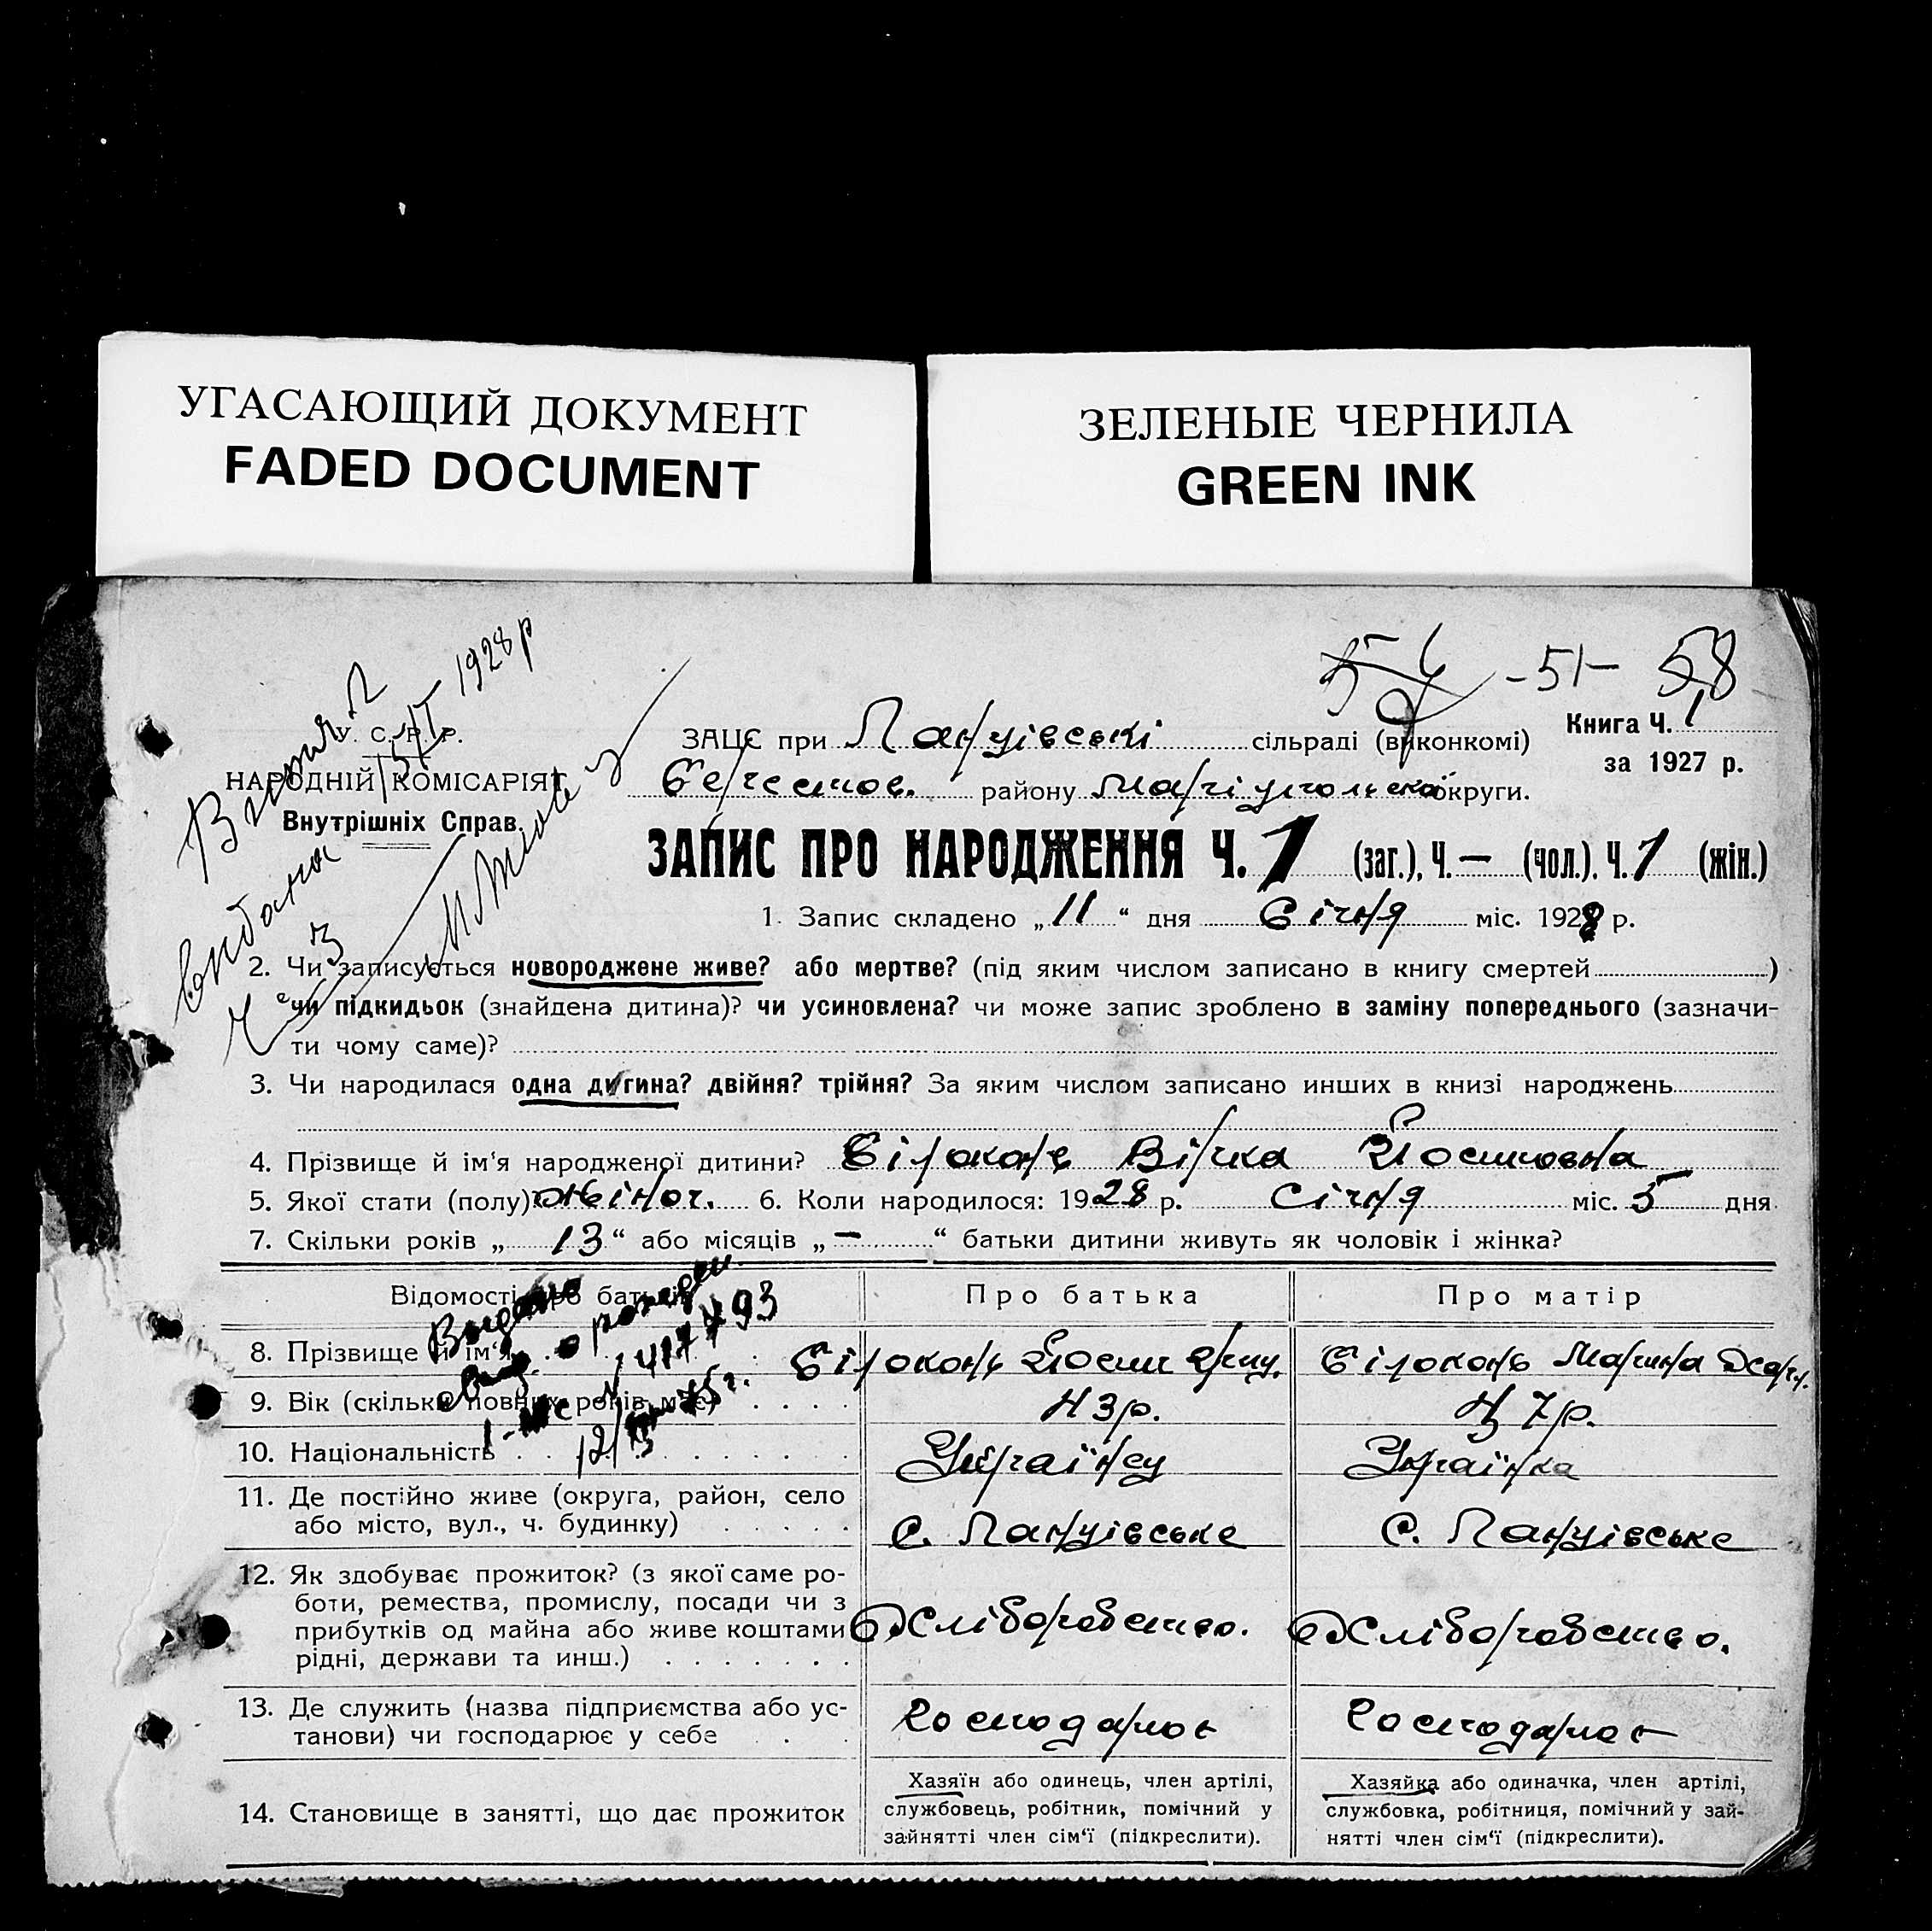 УГАСАЮЩИЙ ДОКУМЕНТ
FADED DOCUMENT
ЗЕЛЕНЫЕ ЧЕРНИЛА
GREEN INK
-51- 58
1928 р
У. С. Р. Р.
НАРОДНІЙ КОМІСАРІЯТ
Внутрішніх Справ.
ЗАЦС при сільраді (виконкомі)
Книга Ч. 1
за 1927 р.
району округи.
ЗАПИС ПРО НАРОДЖЕННЯ Ч. 1 (заг.), Ч. — (чол.). Ч. 1 (жін.)
1. Запис складено „ 11 “ дня Січня міс. 1928 р.
2. Чи записується новороджене живе? або мертве? (під яким числом записано в книгу смертей )
чи підкидьок (знайдена дитина)? чи усиновлена? чи може запис зроблено в заміну попереднього (зазначи-
ти чому саме)?
3. Чи народилася одна дитина? двійня? трійня? За яким числом записано инших в книзі народжень
4. Прізвище й ім'я народженої дитини? Білоконь Вірка Йосиповна
5. Якої статі (полу) жіноч. 6. Коли народилося: 1928 р. Січня міс. 5 дня
7. Скільки років „ 13 “ або місяців „ — “ батьки дитини живуть як чоловік і жінка?
Відомості про батьків
Про батька
Про матір
8. Прізвище й ім'я Білоконь Йосип Білоконь Марина
9. Вік (скільки повних років має) 43р. 37р.
10. Національність Українец Українка
11. Де постійно живе (округа, район, село
або місто, вул., ч. будинку)
С. Ланцівське С. Ланцівське
12. Як здобуває прожиток? (з якої саме ро-
боти, ремества, промислу, посади чи з
прибутків од майна або живе коштами
рідні, держави та инш.)
Хліборобство. Хліборобство.
13. Де служить (назва підприємства або ус-
танови) чи господарює у себе
Господарює Господарює
14. Становище в занятті, що дає прожиток
Хазяїн або одинець, член артілі,
службовець, робітник, помічний у
зайнятті член сім'ї (підкреслити).
Хазяйка або одиначка, член артілі,
службовка, робітниця, помічний у зай-
нятті член сім'ї (підкреслити).